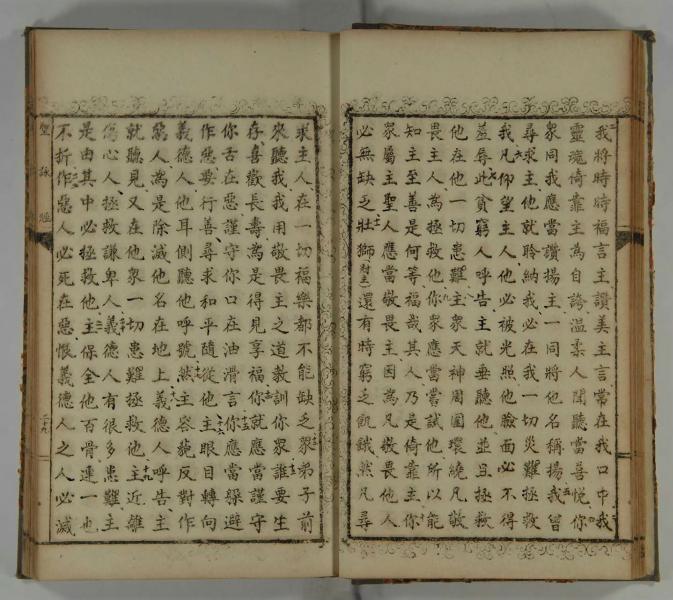 我將時時福言主讚美主言常在我口中我
靈魂倚靠主為自誇温柔人聞聽當喜悅你
眾同我應當讚揚主一同將他名稱揚我曾
尋求主他就聆納我必在我一切災難拯救
我凡仰望主人他必被光照他臉面必不得
羞辱此貧窮人呼告主就垂聽他並且拯救
他在他一切患難主眾天神周圍環繞凡敬
畏主人為拯救他你眾應當嘗試他所以能
知主至善是何等福哉其人乃是倚靠主你
眾屬主聖人應當敬畏主因為凡敬畏他人
必無缺乏壯獅還有時窮乏飢餓然凡尋
求主人在一切福樂都不能缺乏眾弟子前
來聽我我用敬畏主之道教訓你眾誰要生
存喜歡長壽為是得見享福你就應當謹守
你舌在惡謹守你口在油滑言你應當躲避
作惡要行善尋求和平隨從他主眼目轉向
義德人他耳側聽他呼號然主容貌反對作
惡人為是除滅他名在地上義德人呼告主
就聽見又在他眾一切患難拯救他主近離
傷心人拯救謙卑人義德人有很多患難主
是由其中必拯救他主保全他百骨連一也
不折作惡人必死在惡恨義德人之人必滅
聖詠經
二十九